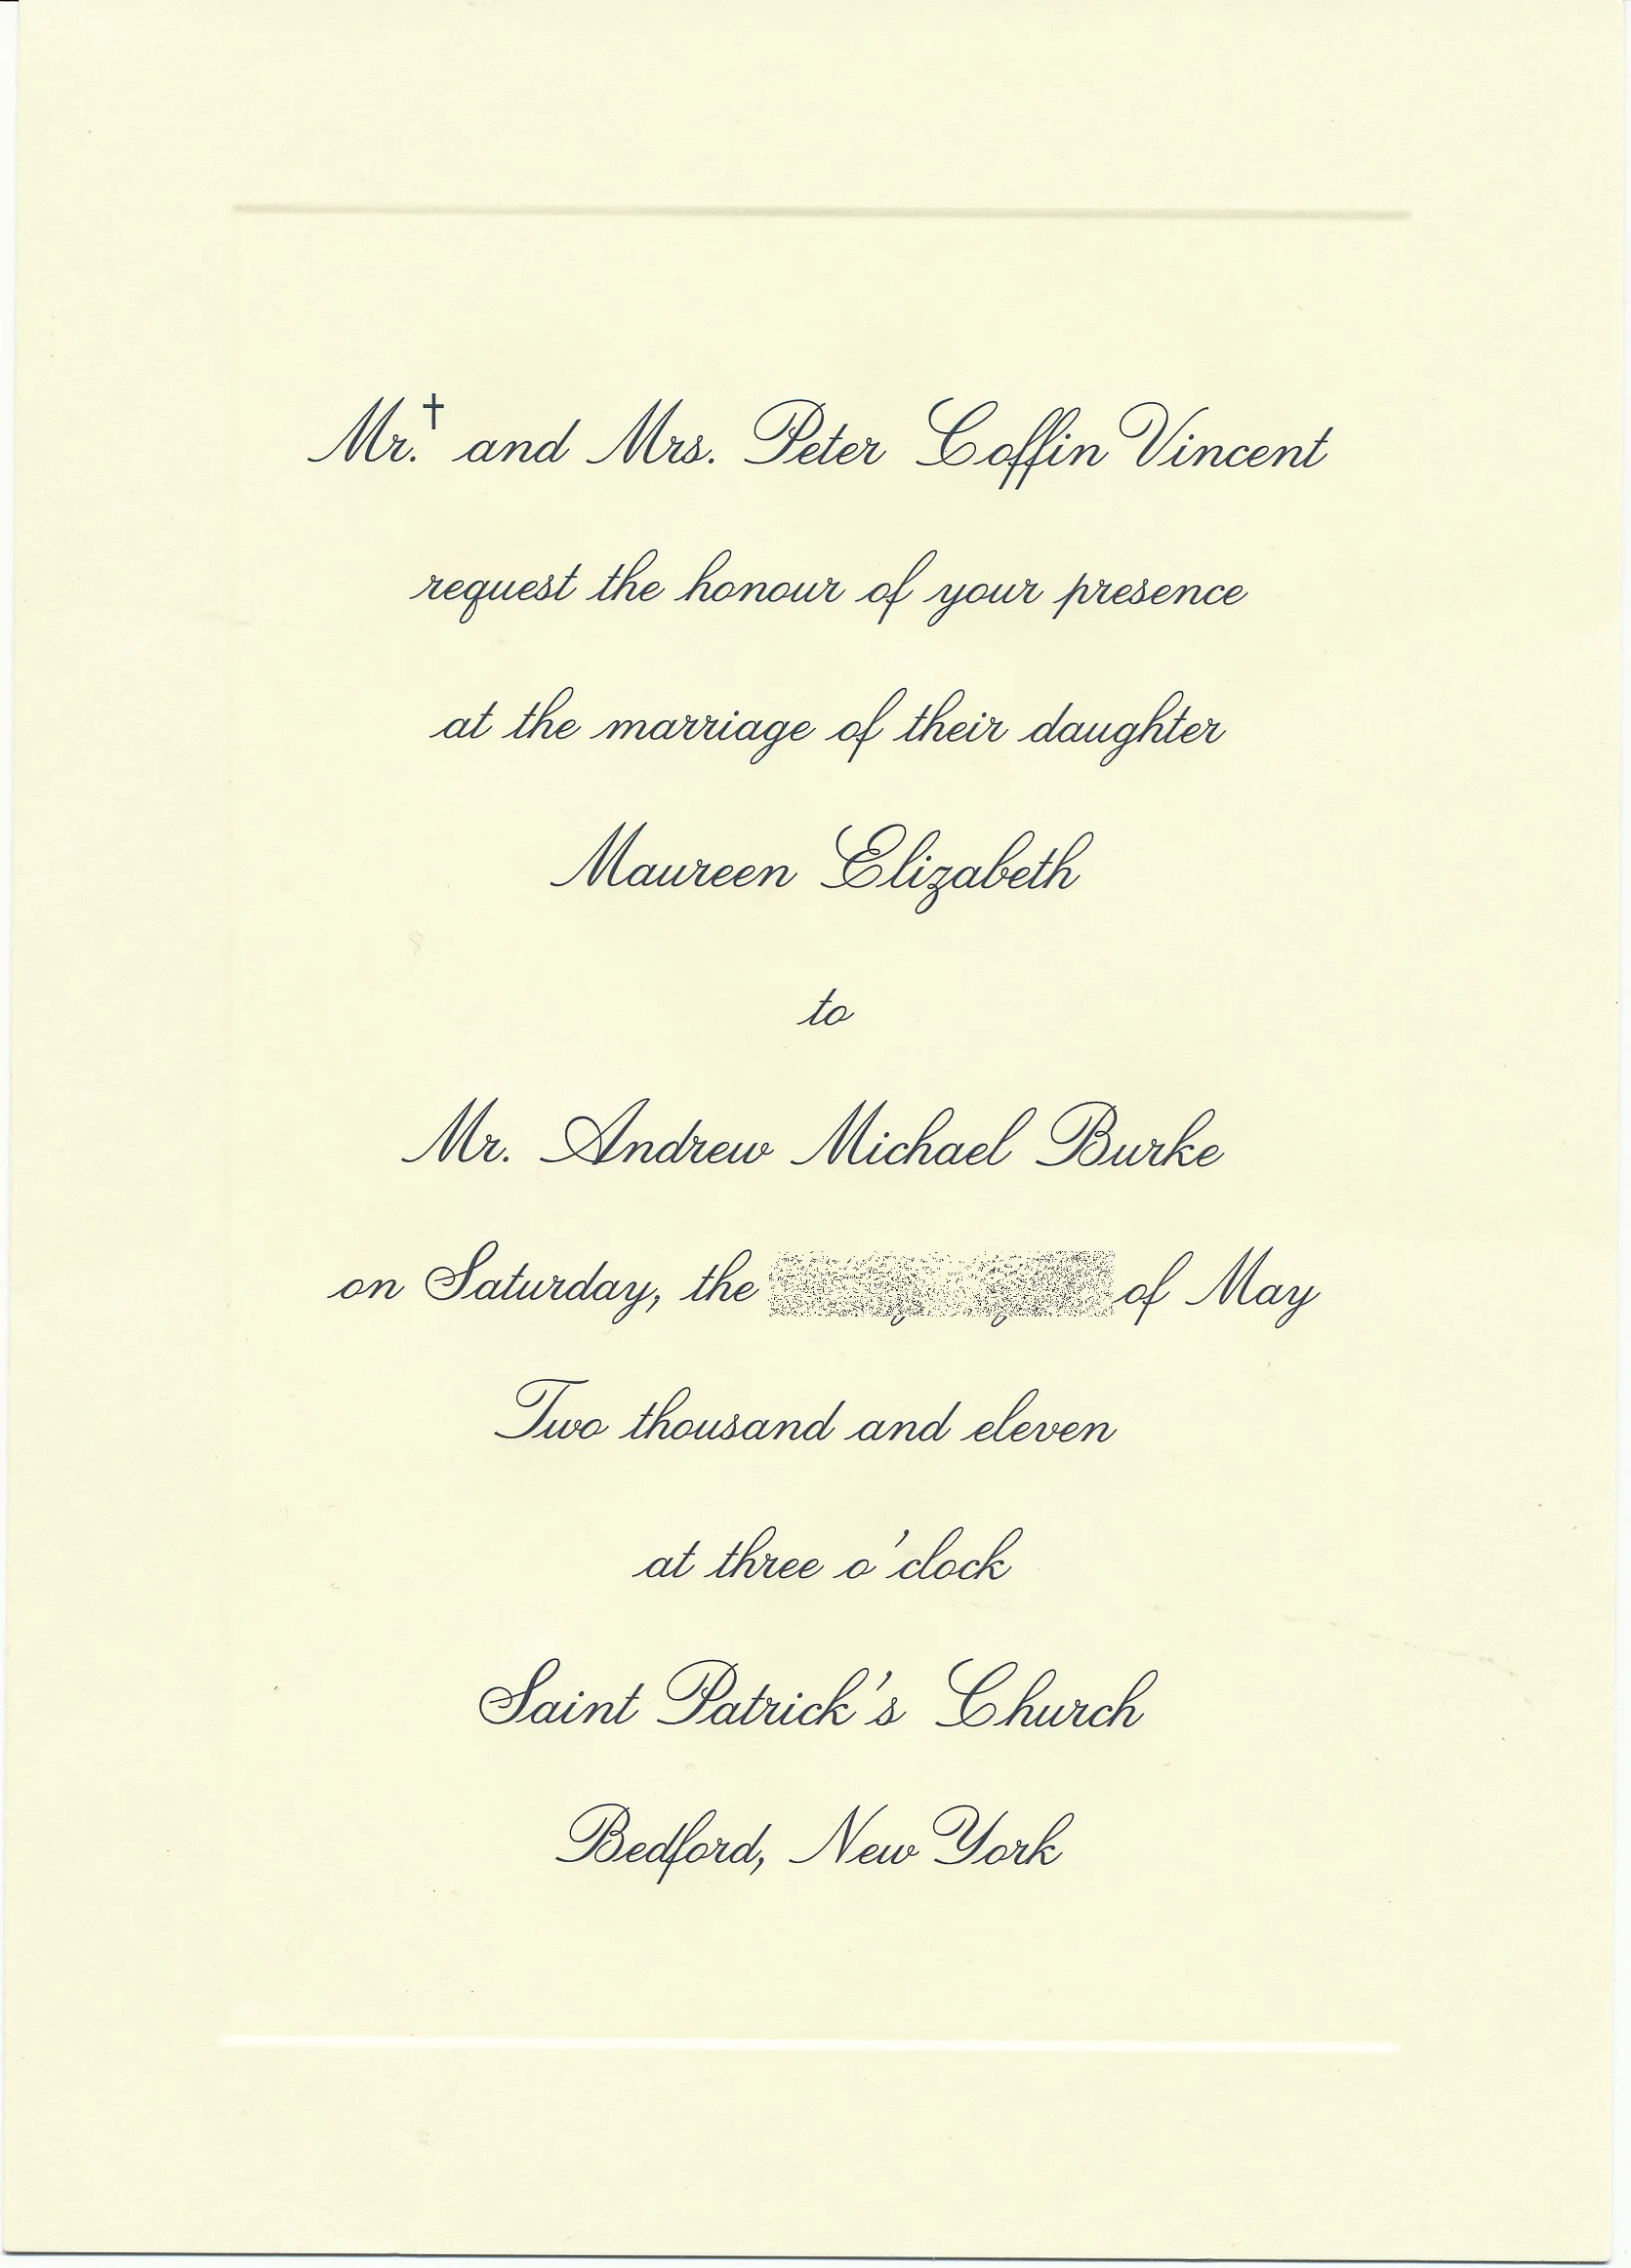 Mr.† and Mrs. Peter Coffin Vincent
request the honour of your presence
at the marriage of their daughter
Maureen Elizabeth
to
Mr. Andrew Michael Burke
on Saturday, the of May
Two thousand and eleven
at three o'clock
Saint Patrick's Church
Bedford, New York